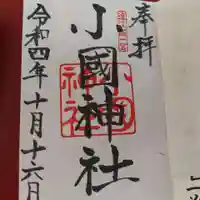 奉拝
遠江國一宮
小國神社
令和四年十月十六日